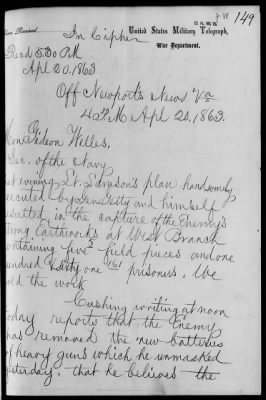 149
In Cipher
United States Military Telegraph,
War Department.
Recd 5.30 PM
Apl 20. 1863
Off Newports News Va
4 PM Apl 20. 1863.
Hon Gideon Welles,
Sec. of the Navy
evening Lt. Lamson's plan handsomely
executed by Genl Getty and himself
resulted in the capture of the Enemy's
Strong Earthworks at West Branch
containing five 5 field pieces and one
hundred Sixty one 161 prisoners. We
hold the work
Cushing writing at noon
today reports that the Enemy
has removed the new batteries
of heavy guns which he unmasked
yesterday; that he believes the